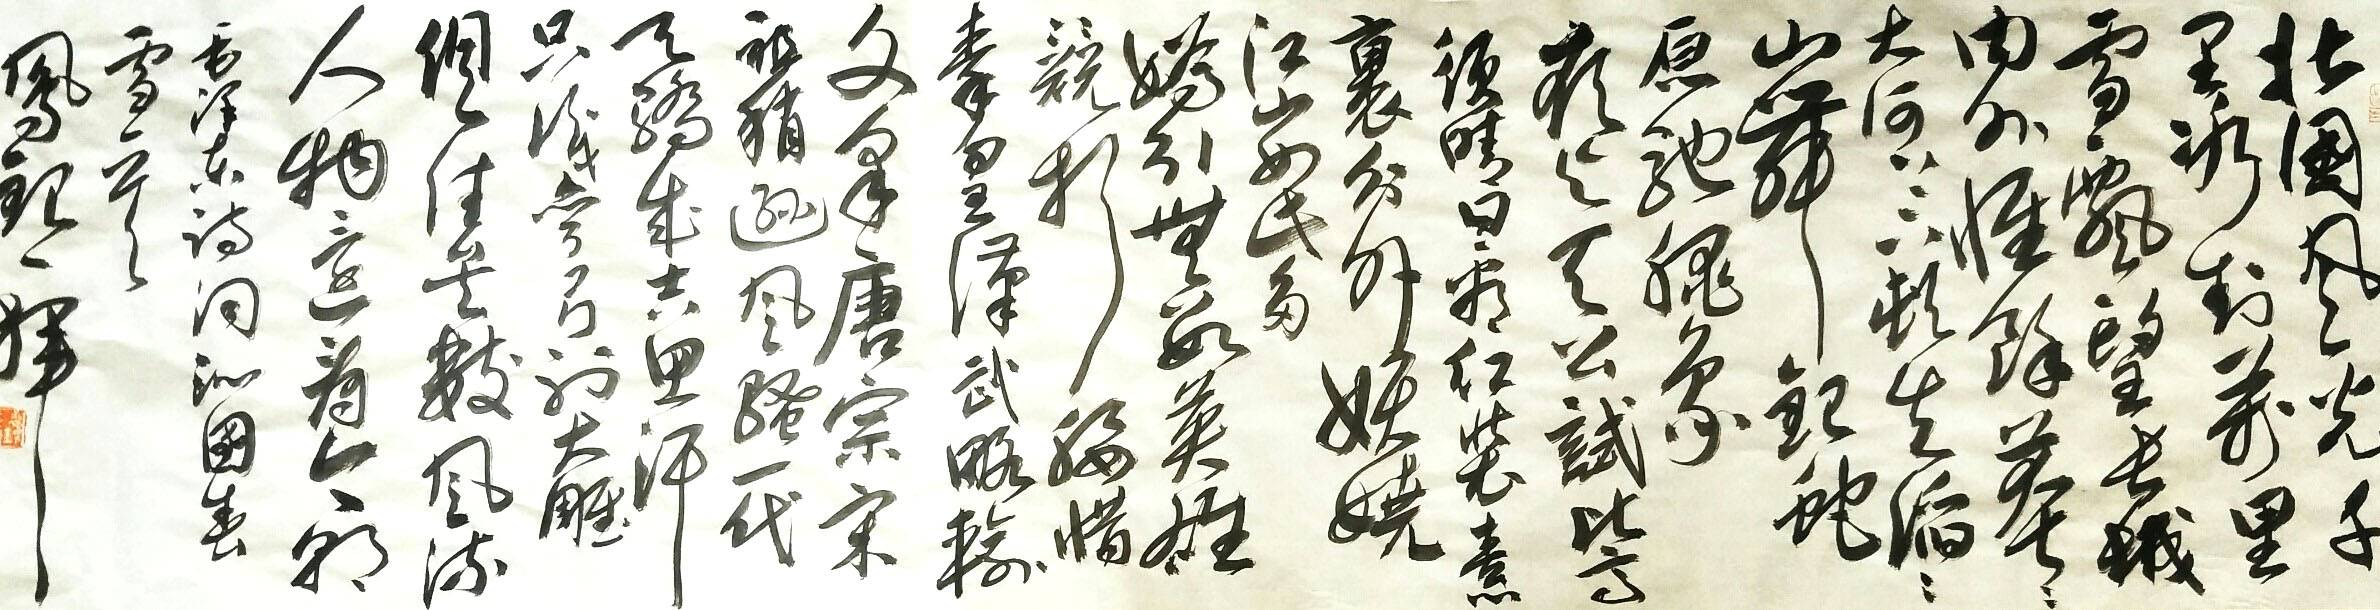 北國风光千
里冰封萬里
雪飄望长城
内外惟餘莽々
大河上下顿失滔々
山舞銀蛇
原馳蜡象
欲与天公試比高
须晴日看红装素
裹分外妖嬈
江山如此多
嬌引無数英雄
競折腰惜
秦皇漢武略輸
文采唐宗宋
祖稍逊风骚一代
天驕成吉思汗
只識弯弓射大雕
俱往矣數风流
人物还看今朝
毛泽东诗词沁園春
雪
鳳